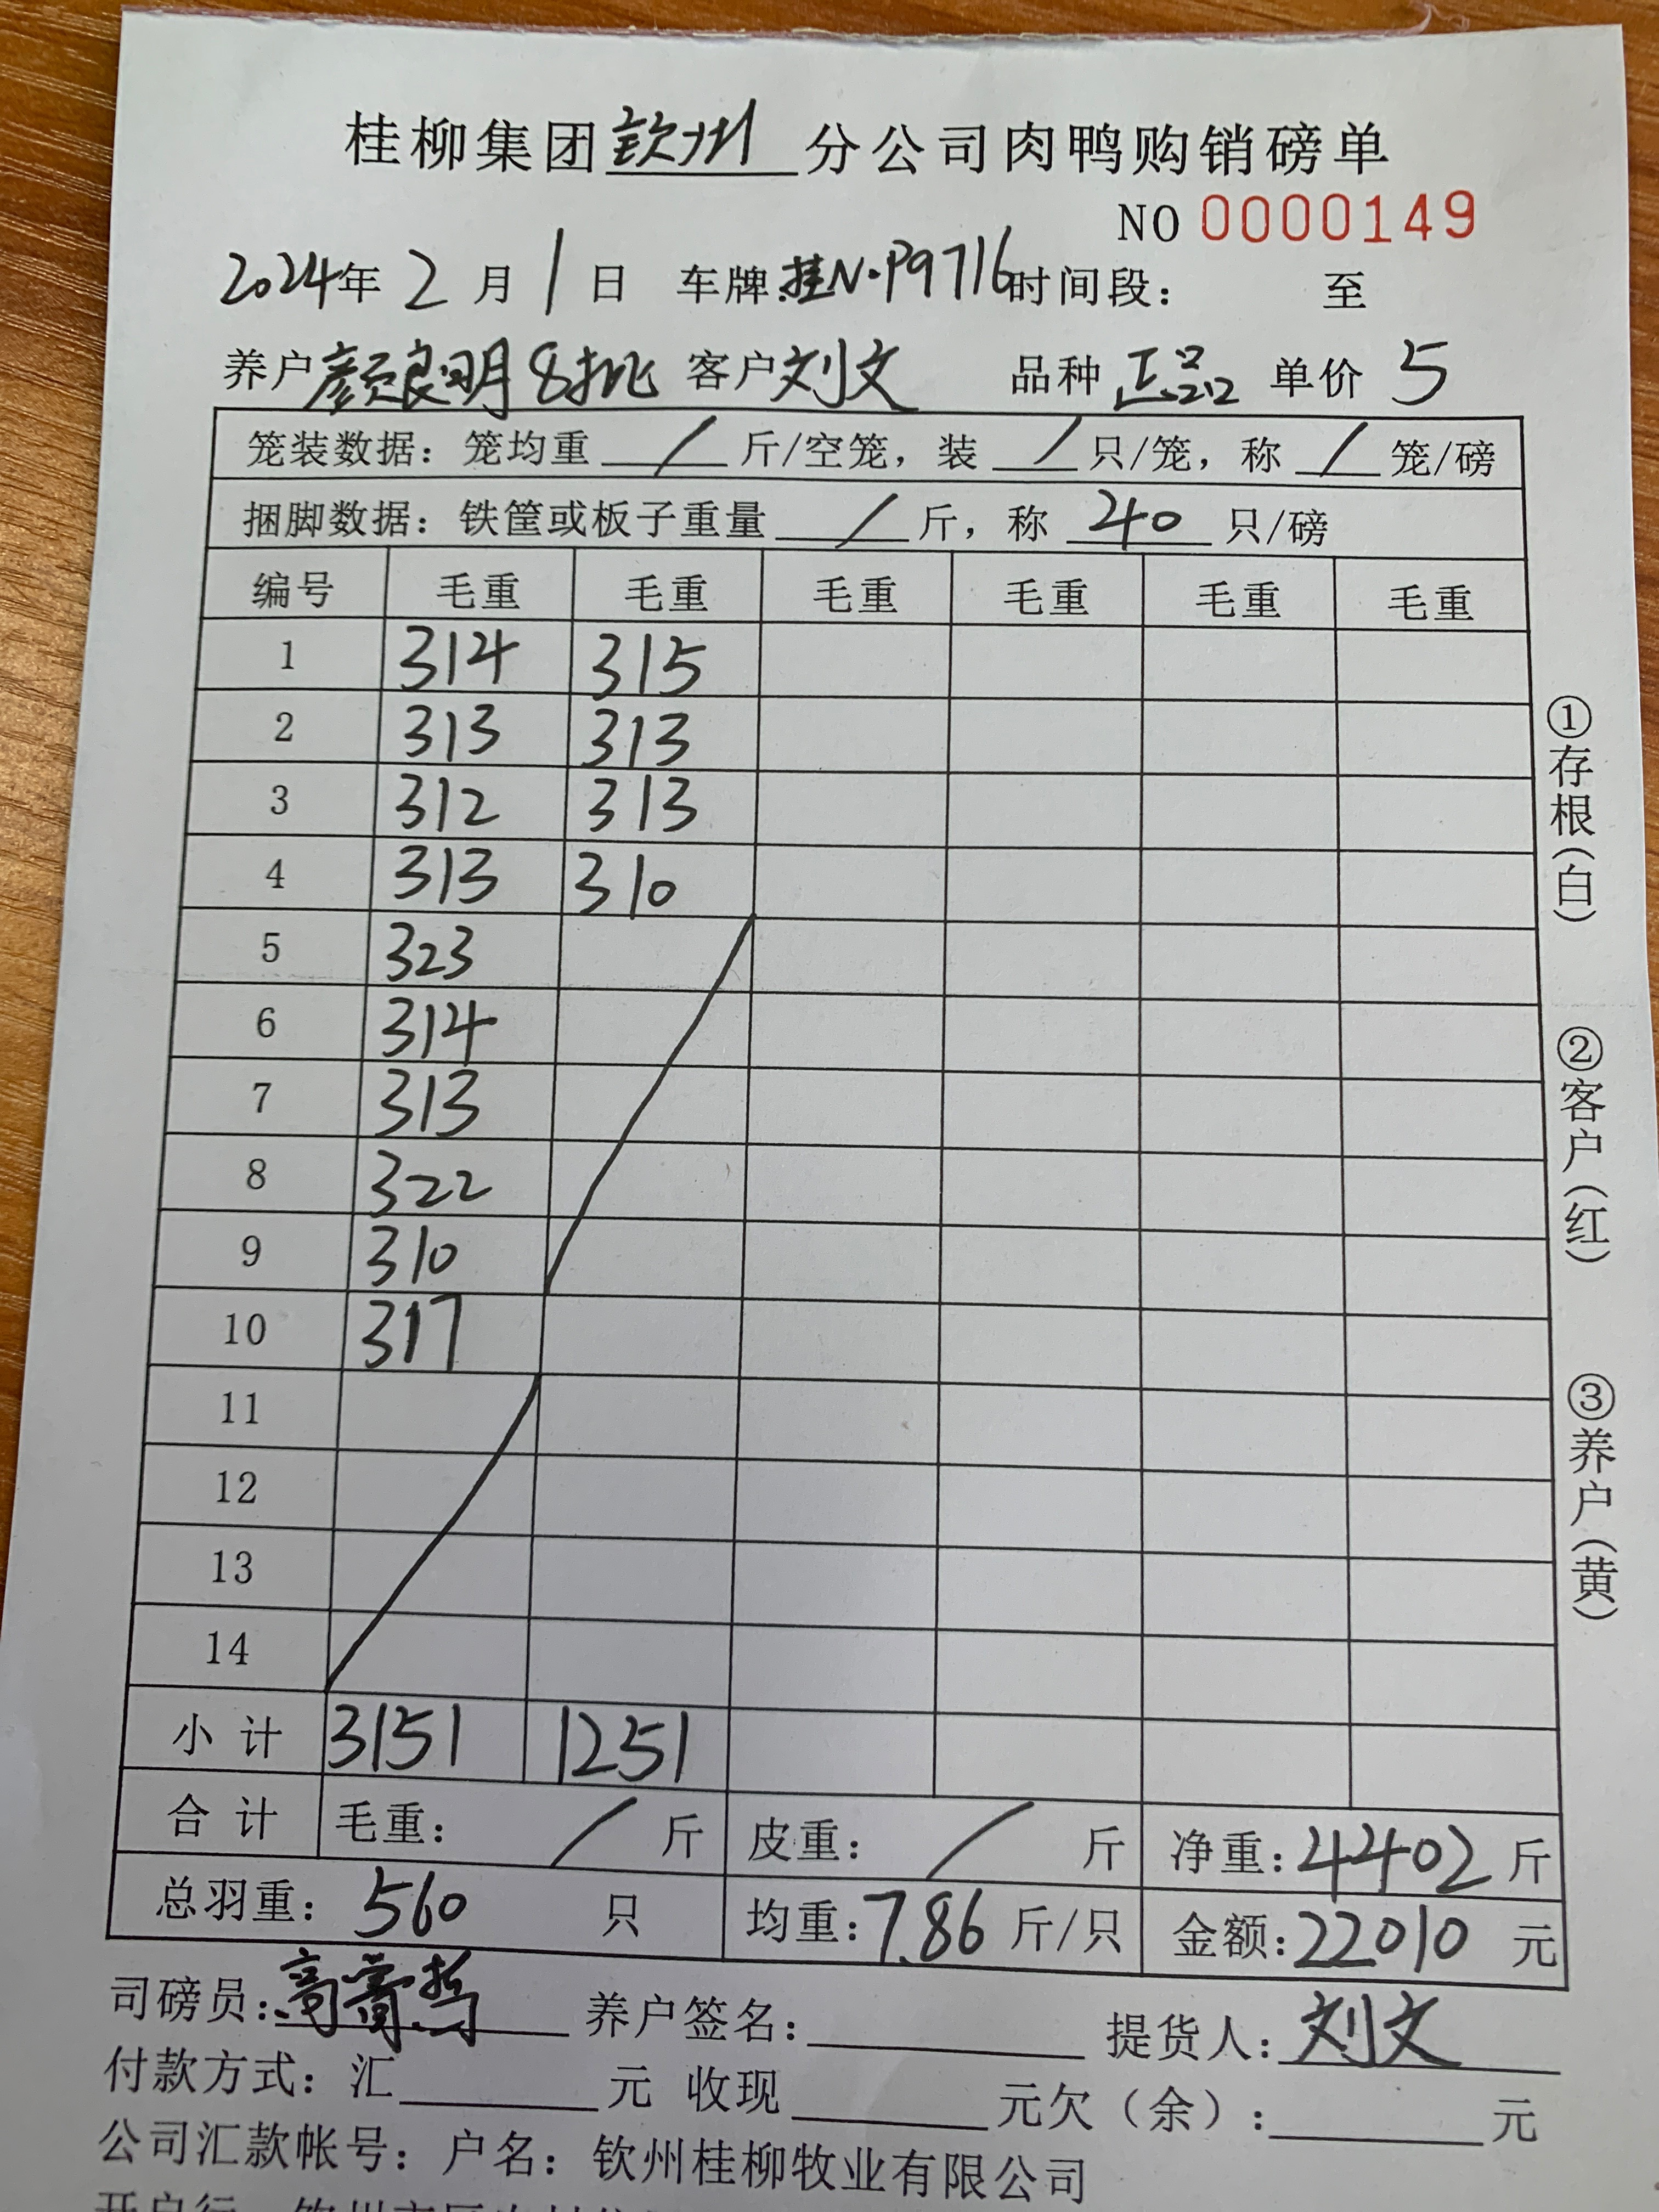 桂柳集团钦州分公司肉鸭购销磅单
NO 0000149
2024年 2 月 1 日 车牌:桂N·P9716 时间段: 至
养户 颜良明 8批 客户 刘文 品种 正品 单价 5
笼装数据: 笼均重 / 斤/空笼, 装 / 只/笼, 称 / 笼/磅
捆脚数据: 铁筐或板子重量 / 斤, 称 240 只/磅
编号 毛重 毛重 毛重 毛重 毛重 毛重
1 314 315
2 313 313
3 312 313
4 313 310
5 323
6 314
7 313
8 322
9 310
10 317
11
12
13
14
小计 3151 1251
合计 毛重: / 斤 皮重: / 斤 净重: 4402 斤
总羽重: 560 只 均重: 7.86 斤/只 金额: 22010 元
司磅员: 高 养户签名: 提货人: 刘文
付款方式: 汇 元 收现 元欠(余): 元
公司汇款帐号: 户名: 钦州桂柳牧业有限公司
①存根(白)
②客户(红)
③养户(黄)